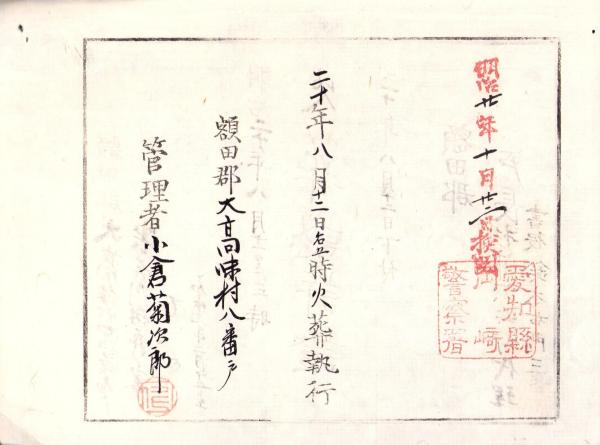 明治廿年十月廿二日検閲
愛知縣
岡崎
警察署
二十年八月十二日午時火葬執行
額田郡大高味村八番戸
管理者小倉菊次郎